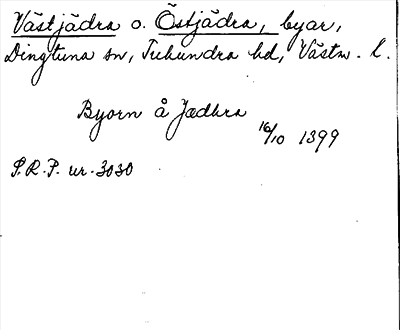 Västjädra o. Östjädra, byar,
Dingtuna sn, Tuhundra hd, Västm. l.
Byorn å Jædhra
16/10 1399
S.R.P. nr. 3030